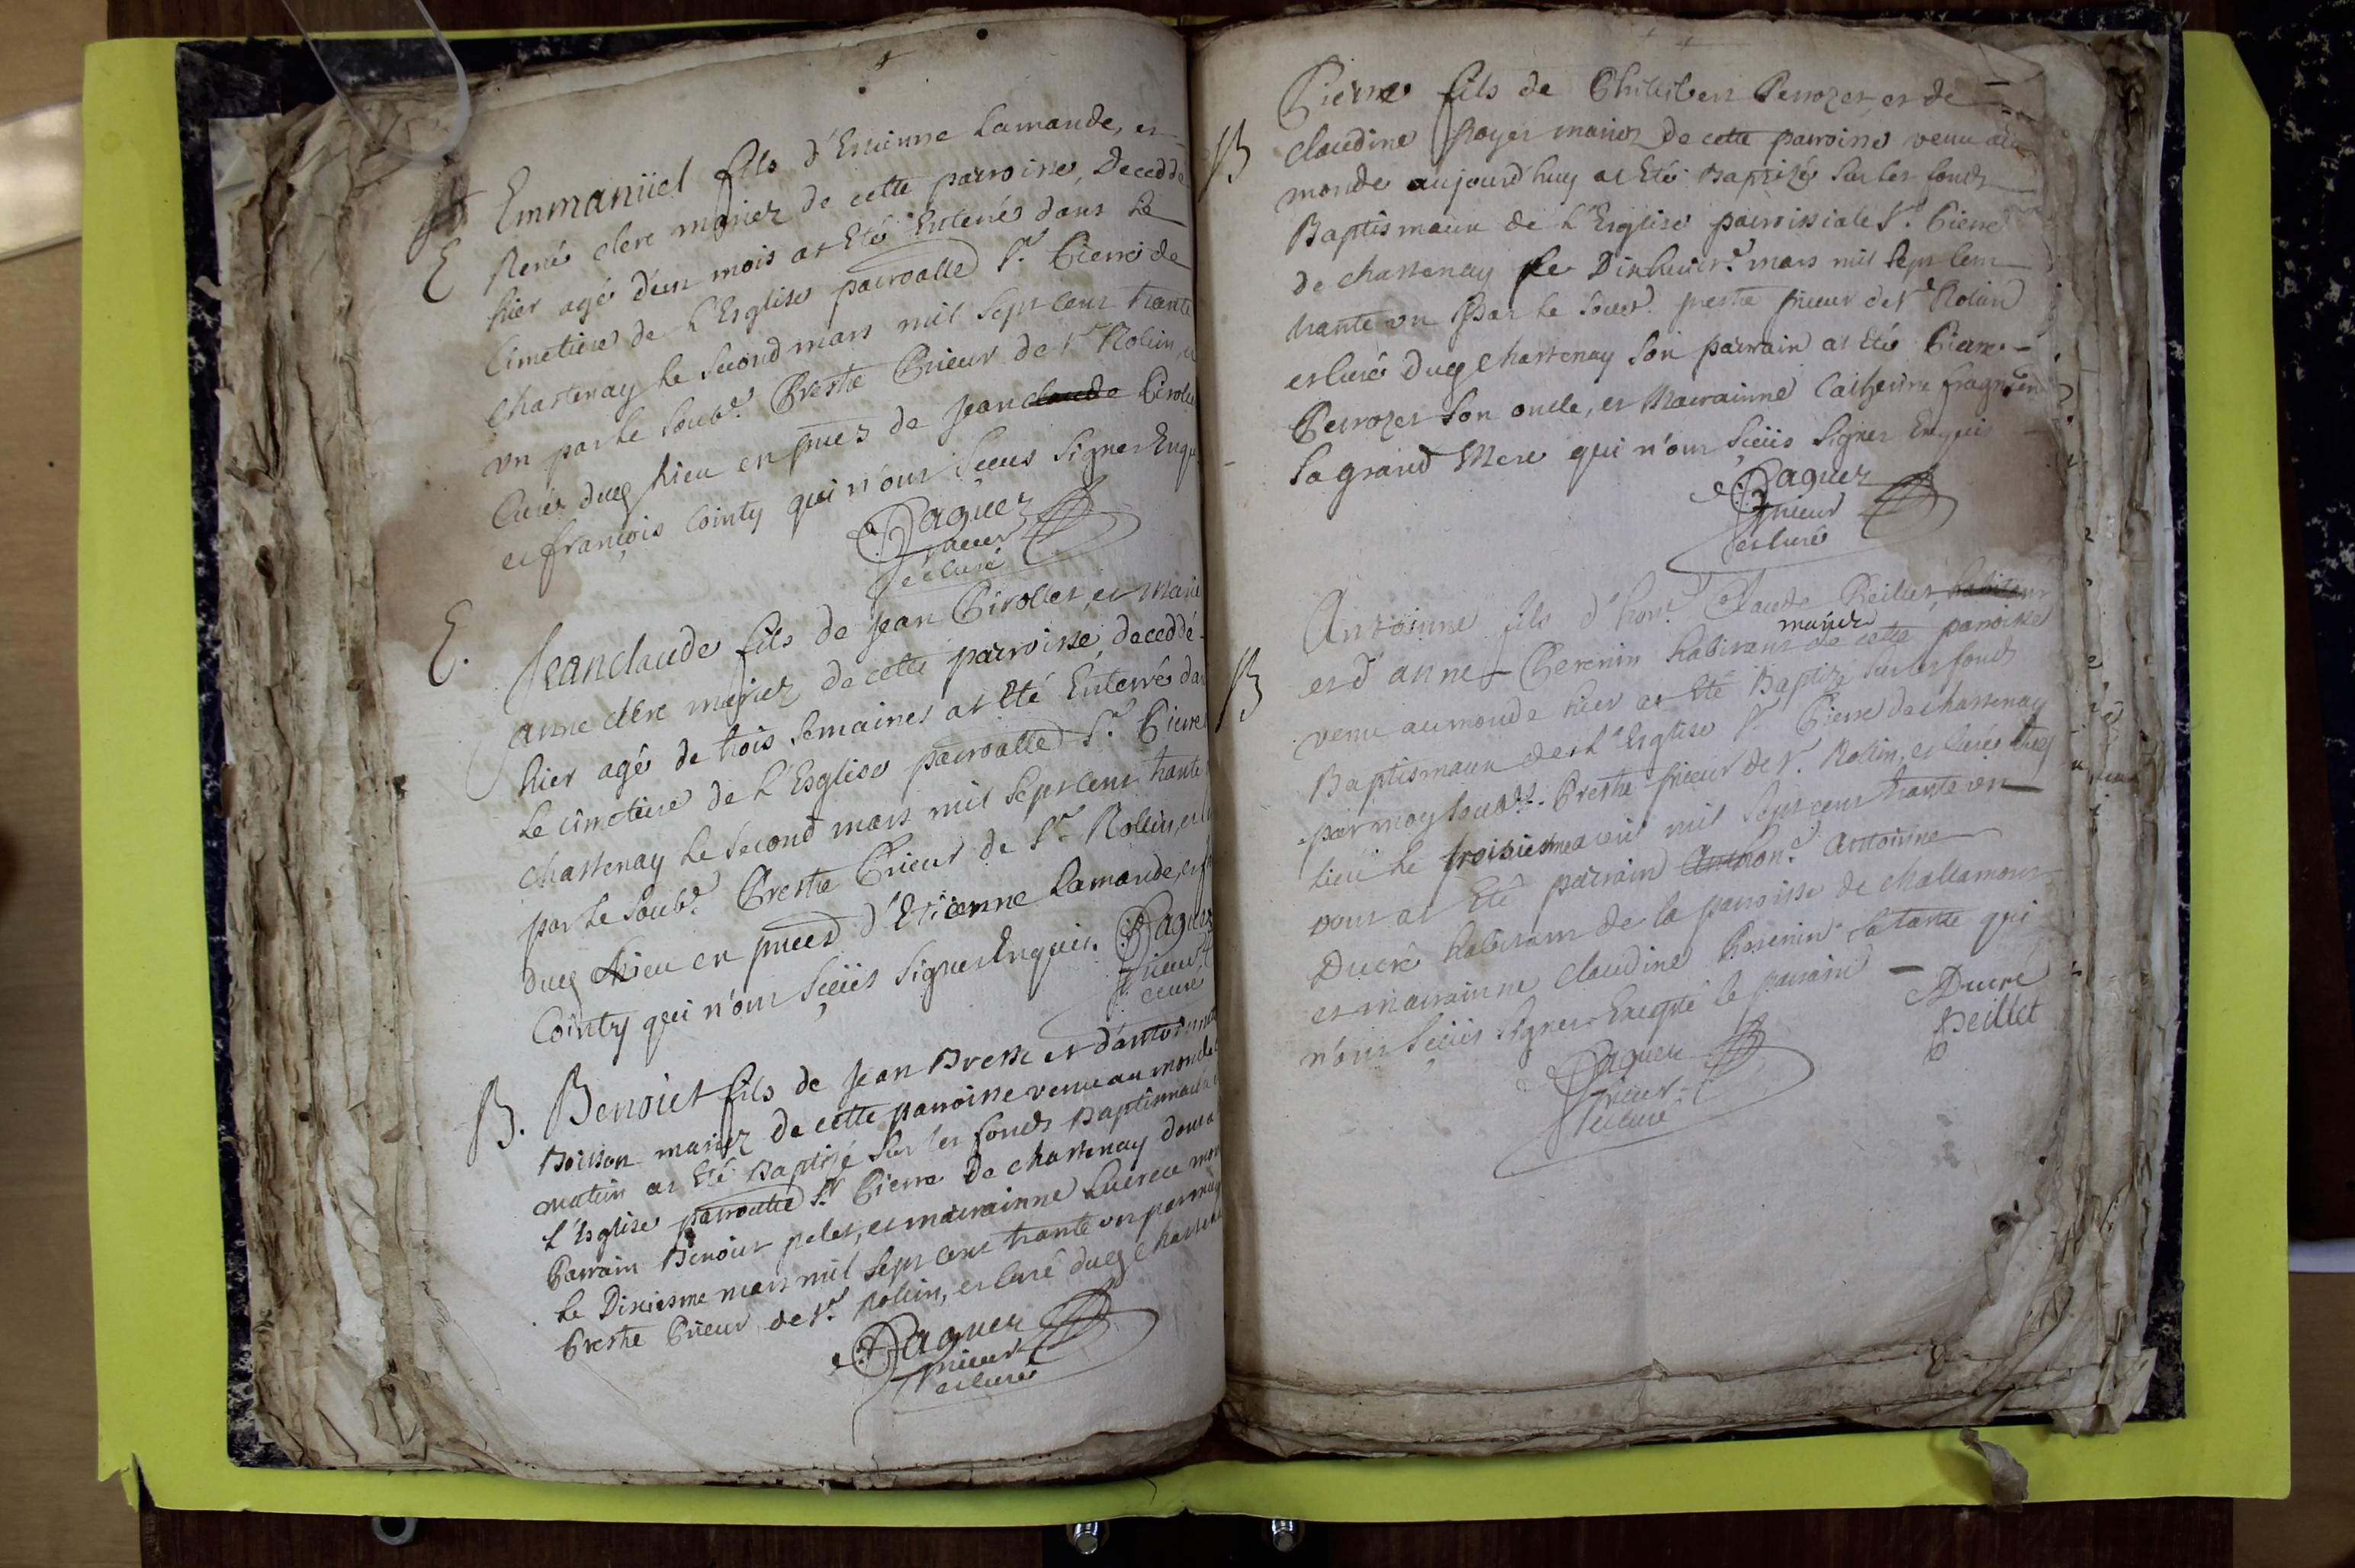 E
Emmanüel fils d'Estienne Lamande, et
René clere mariez de cette parroisse, Deceddé
hier agé d'un mois at Eté Enterrés dans Le
Cimetiere de L'Esglise parroalle St. Pierre de
Chastenay le second mars mil sept cent trante
un par le soubs. Prestre Prieur de St Rolin, et
Curés dud. lieu en pnces de Jean claude Pirollet
et françois Cointy qui n'ont sceus signer Enqu
Paquez
prieur
et curé
E.
Jeanclaude fils de Jean Pirollet, et Marie
anne clere mariez de cette parroisse, deceddé
hier agé de trois semaines at Eté Enterrés dan
Le cimetiere de L'Esglise parroalle St. Pierre
Chastenay le second mars mil sept cent trante
par Le soubs. Prestre Prieur de St Rolin, et
dud lieu en pnces d'Etienne Lamande, et f
Cointy qui n'ont sceüs signer Enquis. Paquez
prieur et
curé
B.
Benoict fils de Jean Bresse et d'antoinne
Boisson mariez de cette parroisse venu au monde
matin at Eté Baptizé sur les fonds Baptismau
L'Esglise parroalle St. Pierre de chastenay dont a
Parrain Benoict pelet, et marrainne Lucrece
Le Dixiesme mars mil sept cent trante un par moy
Prestre Prieur de St. Rolin, et curé dud Chasten
Paquez
prieur
et curé
B
Pierre fils de Philibert Perrozet, et de
claudine Royer mariez de cette parroisse venu au
monde aujourd'huy at Eté Baptizés sur les fonds
Baptismaux de L'Esglise parroissiale St. Pierre
de chastenay le Dixhuict. mars mil sept cent
trante un Par Le soubs. prestre prieur de St Rolin
et curé dud Chastenay son parrain at Eté Pierre
Perrozet son oncle, et Marrainne Catherine
sa grand Mere qui n'ont sceüs signer Enquis
Paquez
prieur
et curé
B
Antoinne fils d'hon. Claude Beillet, habitant
mariez
et d'anne Perenin habitant de cette parroisse
venu au monde hier at Eté Baptizé sur les fonds
Baptismaux de L'Esglise St Pierre de chastenay
par moy soubs. Prestre prieur de St. Rolin, et curés dud
Lieu Le troisiesme avril mil sept cent trante un
dont at Eté parrain Anthon. Antoinne
Ducré habitant de la parroisse de challamont
et marrainne claudine Perenin sa tante qui
n'ont sceüs signer Excepté le parrain
Ducré
Beillet
Paquez
prieur
et curé